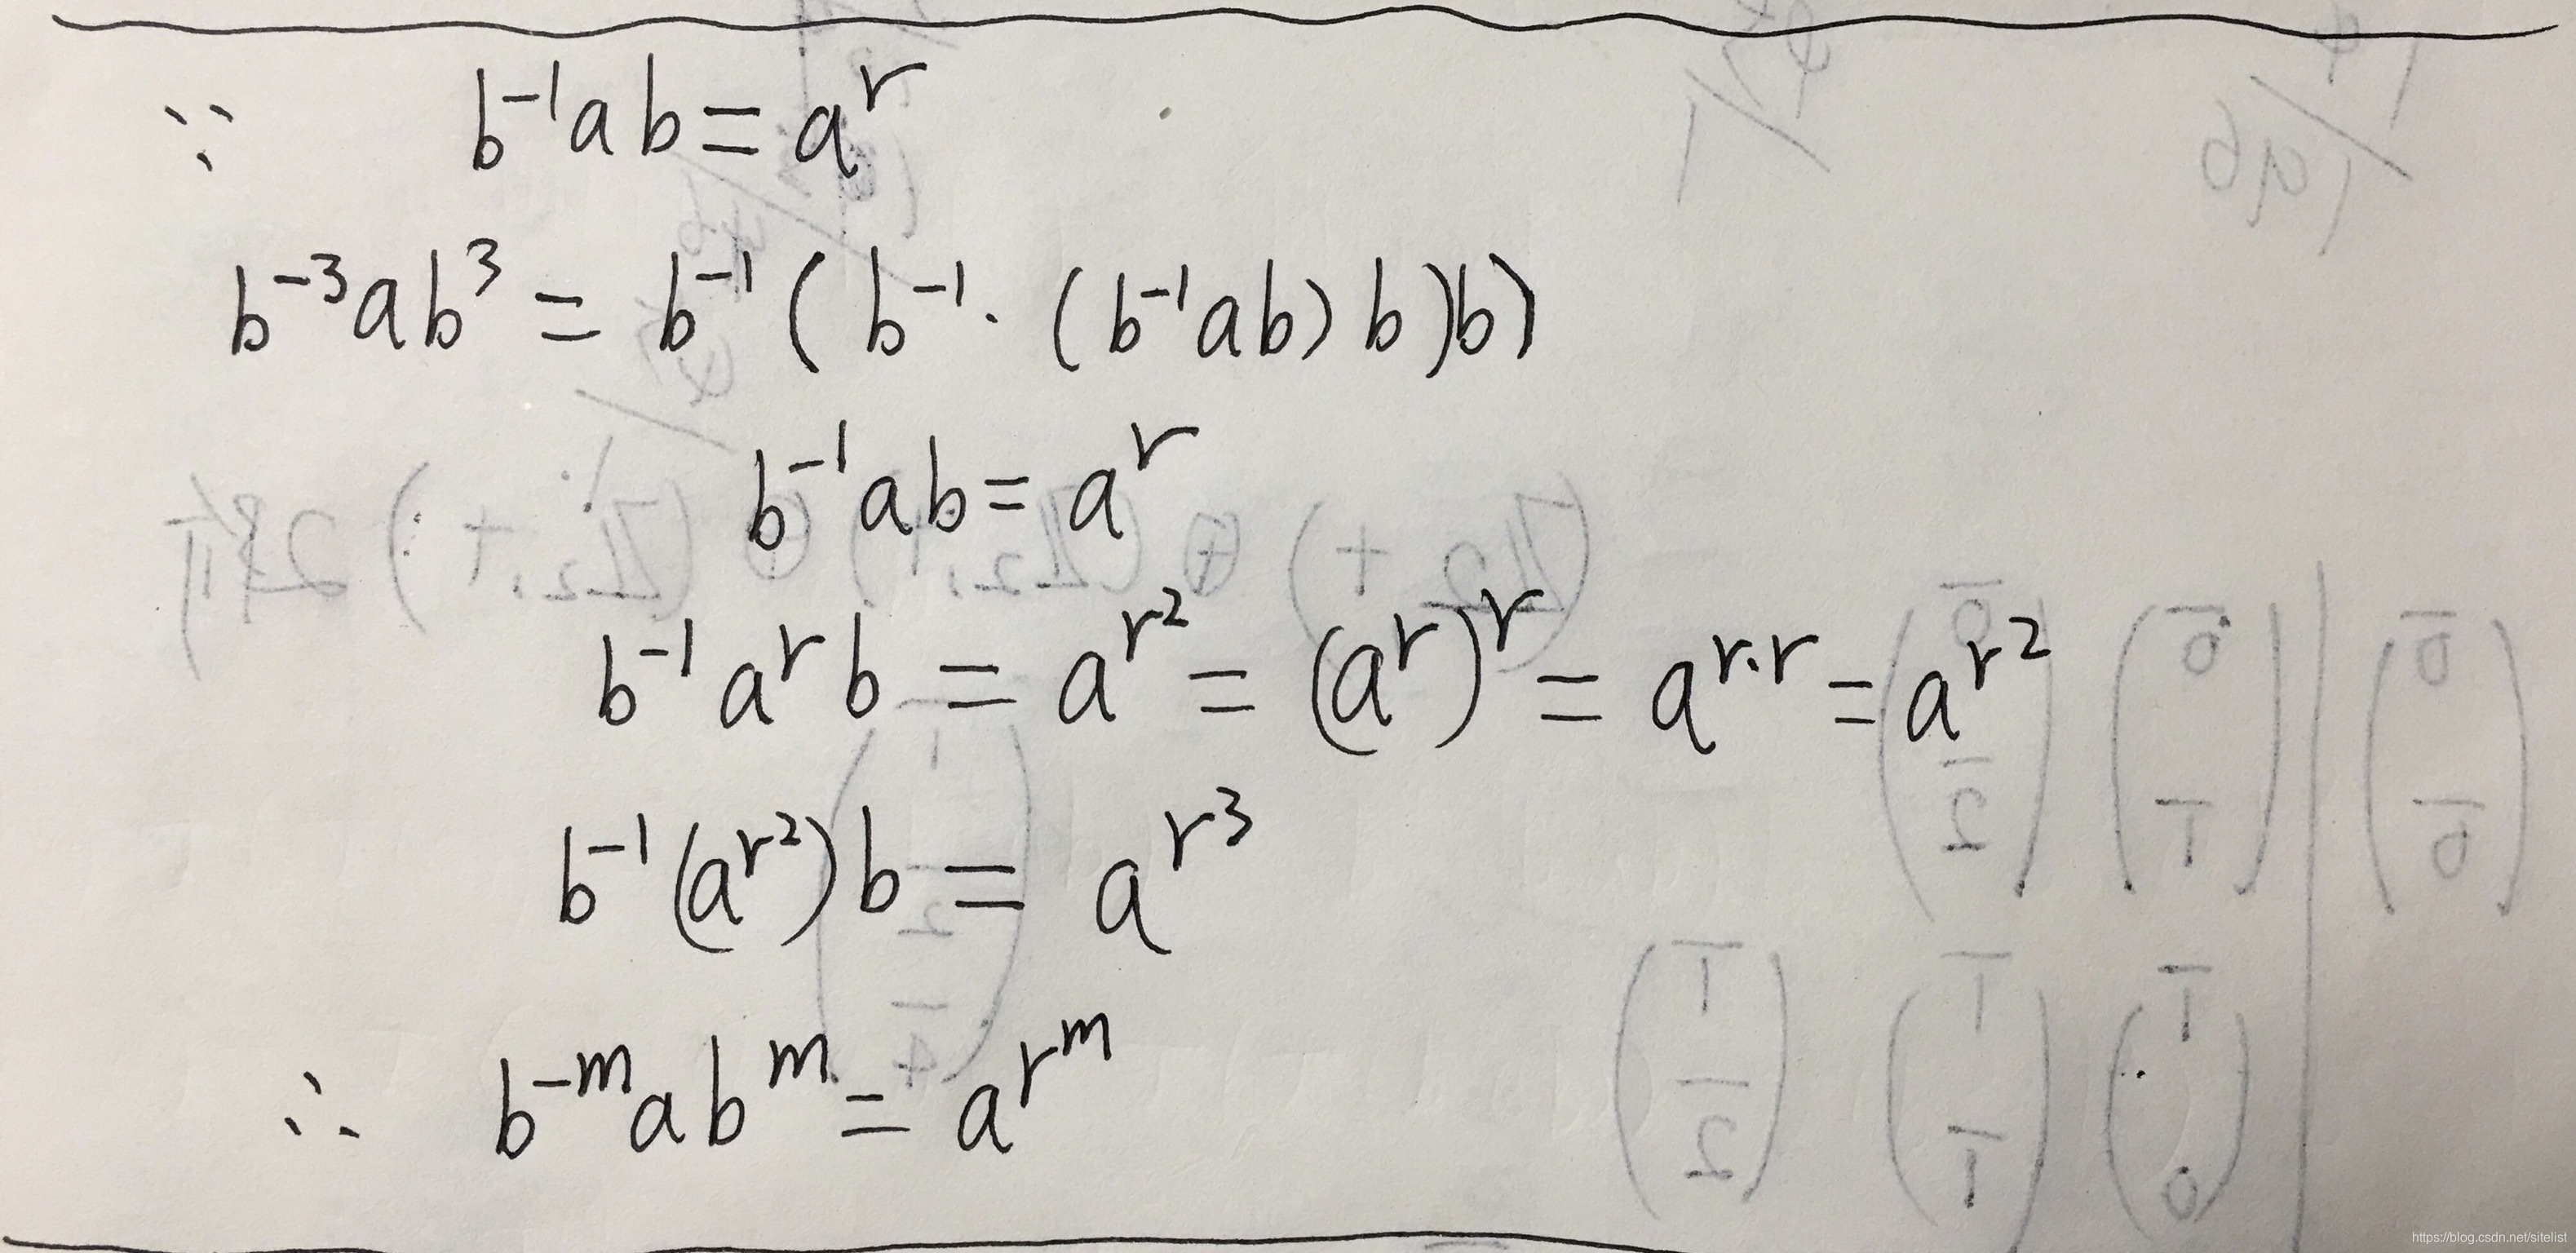 ∵ b⁻¹ab = aʳ
b⁻³ab³ = b⁻¹( b⁻¹· (b⁻¹ab) b)b)
b⁻¹ab = aʳ
b⁻¹aʳb = a^{r²} = (aʳ)ʳ = a^{r·r} = a^{r²}
b⁻¹(a^{r²})b = a^{r³}
∴ b^{-m}ab^{m} = a^{r^m}
https://blog.csdn.net/sitelist